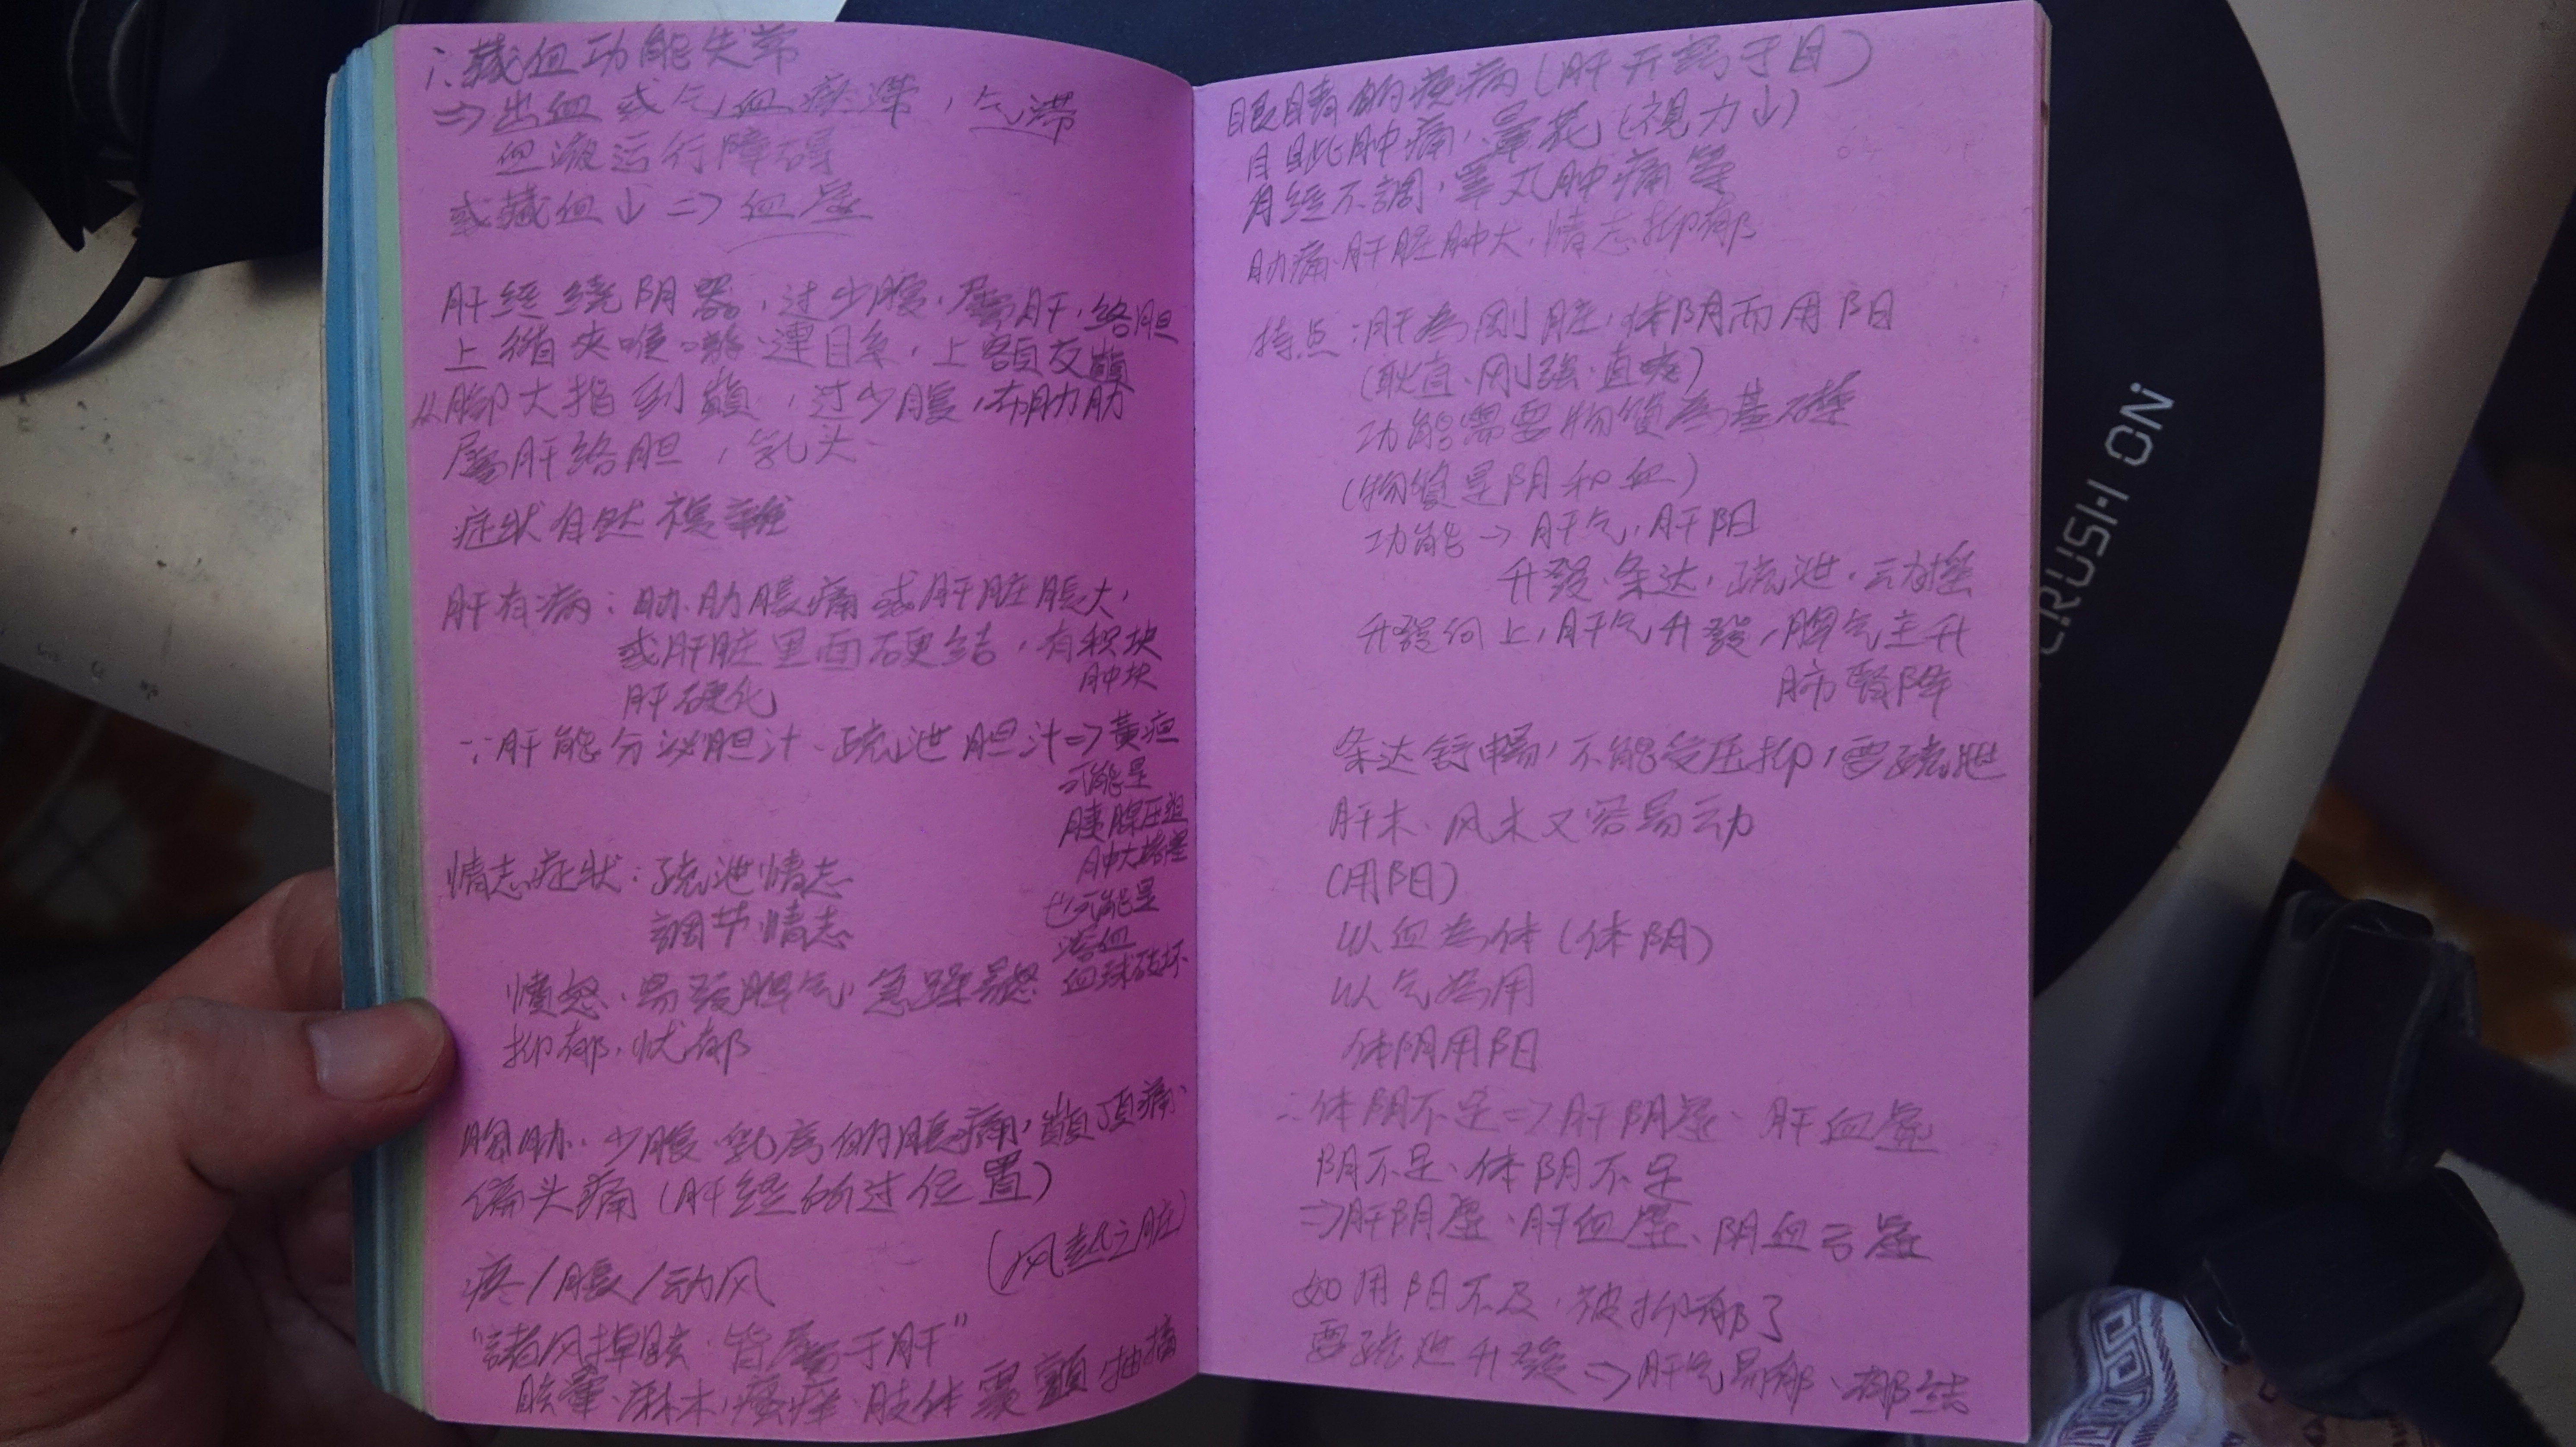 ∴藏血功能失常
⇒出血或气血瘀滞，气滞
血液运行障碍
或藏血↓⇒血虚
肝经绕阴器，过少腹，属肝，络胆
上循夹喉咙 連目系，上額交巔
从脚大指到巔，过少腹，布胁肋
属肝络胆，乳头
症状自然複雜
肝有病：胁肋胀痛或肝脏胀大，
或肝脏里面硬结，有积块
肿块
肝硬化
∵肝能分泌胆汁、疏泄胆汁⇒黃疸
可能是
胰腺压迫
肿大堵塞
也可能是
溶血
血球破坏
情志症狀：疏泄情志
調节情志
憤怒、易發脾气，急躁易怒
抑郁，忧郁
胸胁、少腹、乳房的胀痛，巔顶痛、
偏头痛（肝经的过位置）
疼/胀/动风
（风起之脏）
“諸风掉眩 皆属于肝”
眩暈、麻木，瘙痒、肢体震顫 抽搐
眼睛的疾病（肝开窍于目）
目眦肿痛，暈花（視力↓）
月经不調，睾丸肿痛等
肋痛 肝脏肿大，情志抑郁
特点：肝為刚脏，体阴而用阳
（耿直、刚强、直爽）
功能需要物質為基礎
（物質是阴和血）
功能→肝气，肝阳
升發、条达，疏泄，动摇
升發向上，肝气升發，脾气主升
肺腎降
条达舒暢，不能受压抑，要疏泄
肝木、风木又容易动
（用阳）
以血為体（体阴）
以气為用
体阴用阳
∴体阴不足⇒肝阴虚、肝血虚
阴不足、体阴不足
⇒肝阴虚、肝血虚、阴血亏虚
如用阳不及，被抑郁了
要疏泄升發⇒肝气易郁、郁结
CRUSH ON